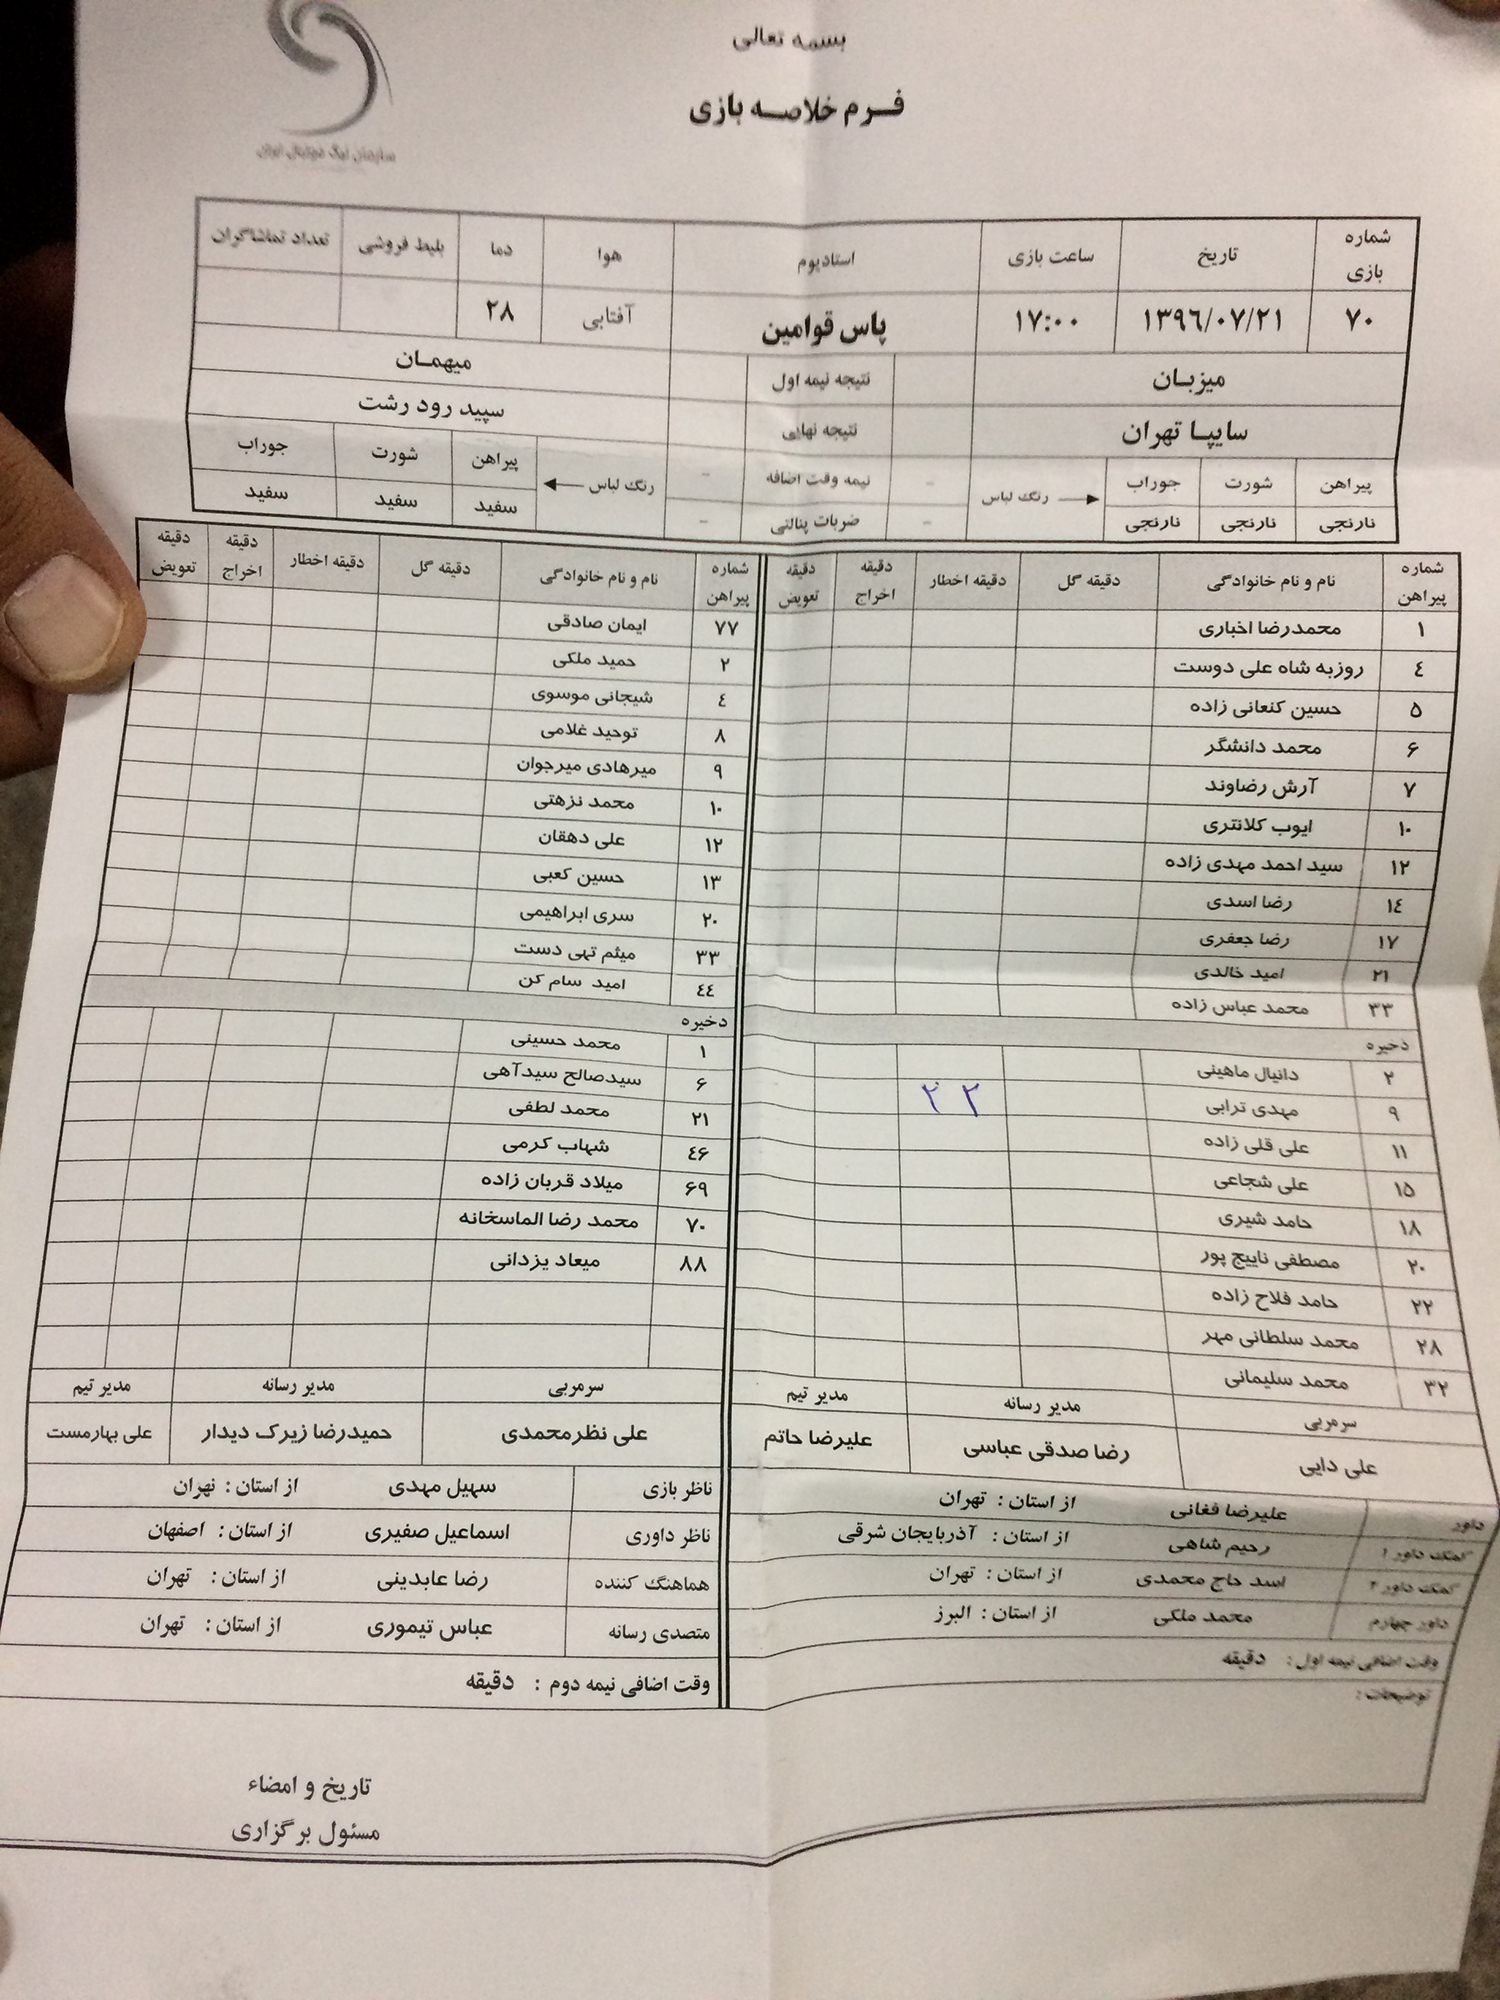 بسمه تعالی
فرم خلاصه بازی
سازمان لیگ فوتبال ایران
شماره بازی تاریخ ساعت بازی استادیوم هوا دما بلیط فروشی تعداد تماشاگران
۷۰ ۱۳۹۶/۰۷/۲۱ ۱۷:۰۰ پاس قوامین آفتابی ۲۸
میزبان نتیجه نیمه اول میهمان
سایپا تهران نتیجه نهایی سپید رود رشت
پیراهن شورت جوراب رنگ لباس - نیمه وقت اضافه - رنگ لباس پیراهن شورت جوراب
نارنجی نارنجی نارنجی - ضربات پنالتی - سفید سفید سفید
شماره پیراهن نام و نام خانوادگی دقیقه گل دقیقه اخطار دقیقه اخراج دقیقه تعویض
۱ محمدرضا اخباری
۴ روزبه شاه علی دوست
۵ حسین کنعانی زاده
۶ محمد دانشگر
۷ آرش رضاوند
۱۰ ایوب کلانتری
۱۲ سید احمد مهدی زاده
۱۴ رضا اسدی
۱۷ رضا جعفری
۲۱ امید خالدی
۳۳ محمد عباس زاده
ذخیره
۲ دانیال ماهینی
۹ مهدی ترابی ۲ ۲
۱۱ علی قلی زاده
۱۵ علی شجاعی
۱۸ حامد شیری
۲۰ مصطفی ناییج پور
۲۲ حامد فلاح زاده
۲۸ محمد سلطانی مهر
۳۲ محمد سلیمانی
سرمربی مدیر رسانه مدیر تیم
علی دایی رضا صدقی عباسی علیرضا حاتم
داور علیرضا فغانی از استان : تهران
کمک داور ۱ رحیم شاهی از استان : آذربایجان شرقی
کمک داور ۲ اسد حاج محمدی از استان : تهران
داور چهارم محمد ملکی از استان : البرز
وقت اضافی نیمه اول : دقیقه
توضیحات :
شماره پیراهن نام و نام خانوادگی دقیقه گل دقیقه اخطار دقیقه اخراج دقیقه تعویض
۷۷ ایمان صادقی
۲ حمید ملکی
۴ شیجانی موسوی
۸ توحید غلامی
۹ میرهادی میرجوان
۱۰ محمد نزهتی
۱۲ علی دهقان
۱۳ حسین کعبی
۲۰ سری ابراهیمی
۳۳ میثم تهی دست
۴۴ امید سام کن
ذخیره
۱ محمد حسینی
۶ سیدصالح سیدآهی
۲۱ محمد لطفی
۴۶ شهاب کرمی
۶۹ میلاد قربان زاده
۷۰ محمد رضا الماسخانه
۸۸ میعاد یزدانی
سرمربی مدیر رسانه مدیر تیم
علی نظرمحمدی حمیدرضا زیرک دیدار علی بهارمست
ناظر بازی سهیل مهدی از استان : تهران
ناظر داوری اسماعیل صفیری از استان : اصفهان
هماهنگ کننده رضا عابدینی از استان : تهران
متصدی رسانه عباس تیموری از استان : تهران
وقت اضافی نیمه دوم : دقیقه
تاریخ و امضاء
مسئول برگزاری